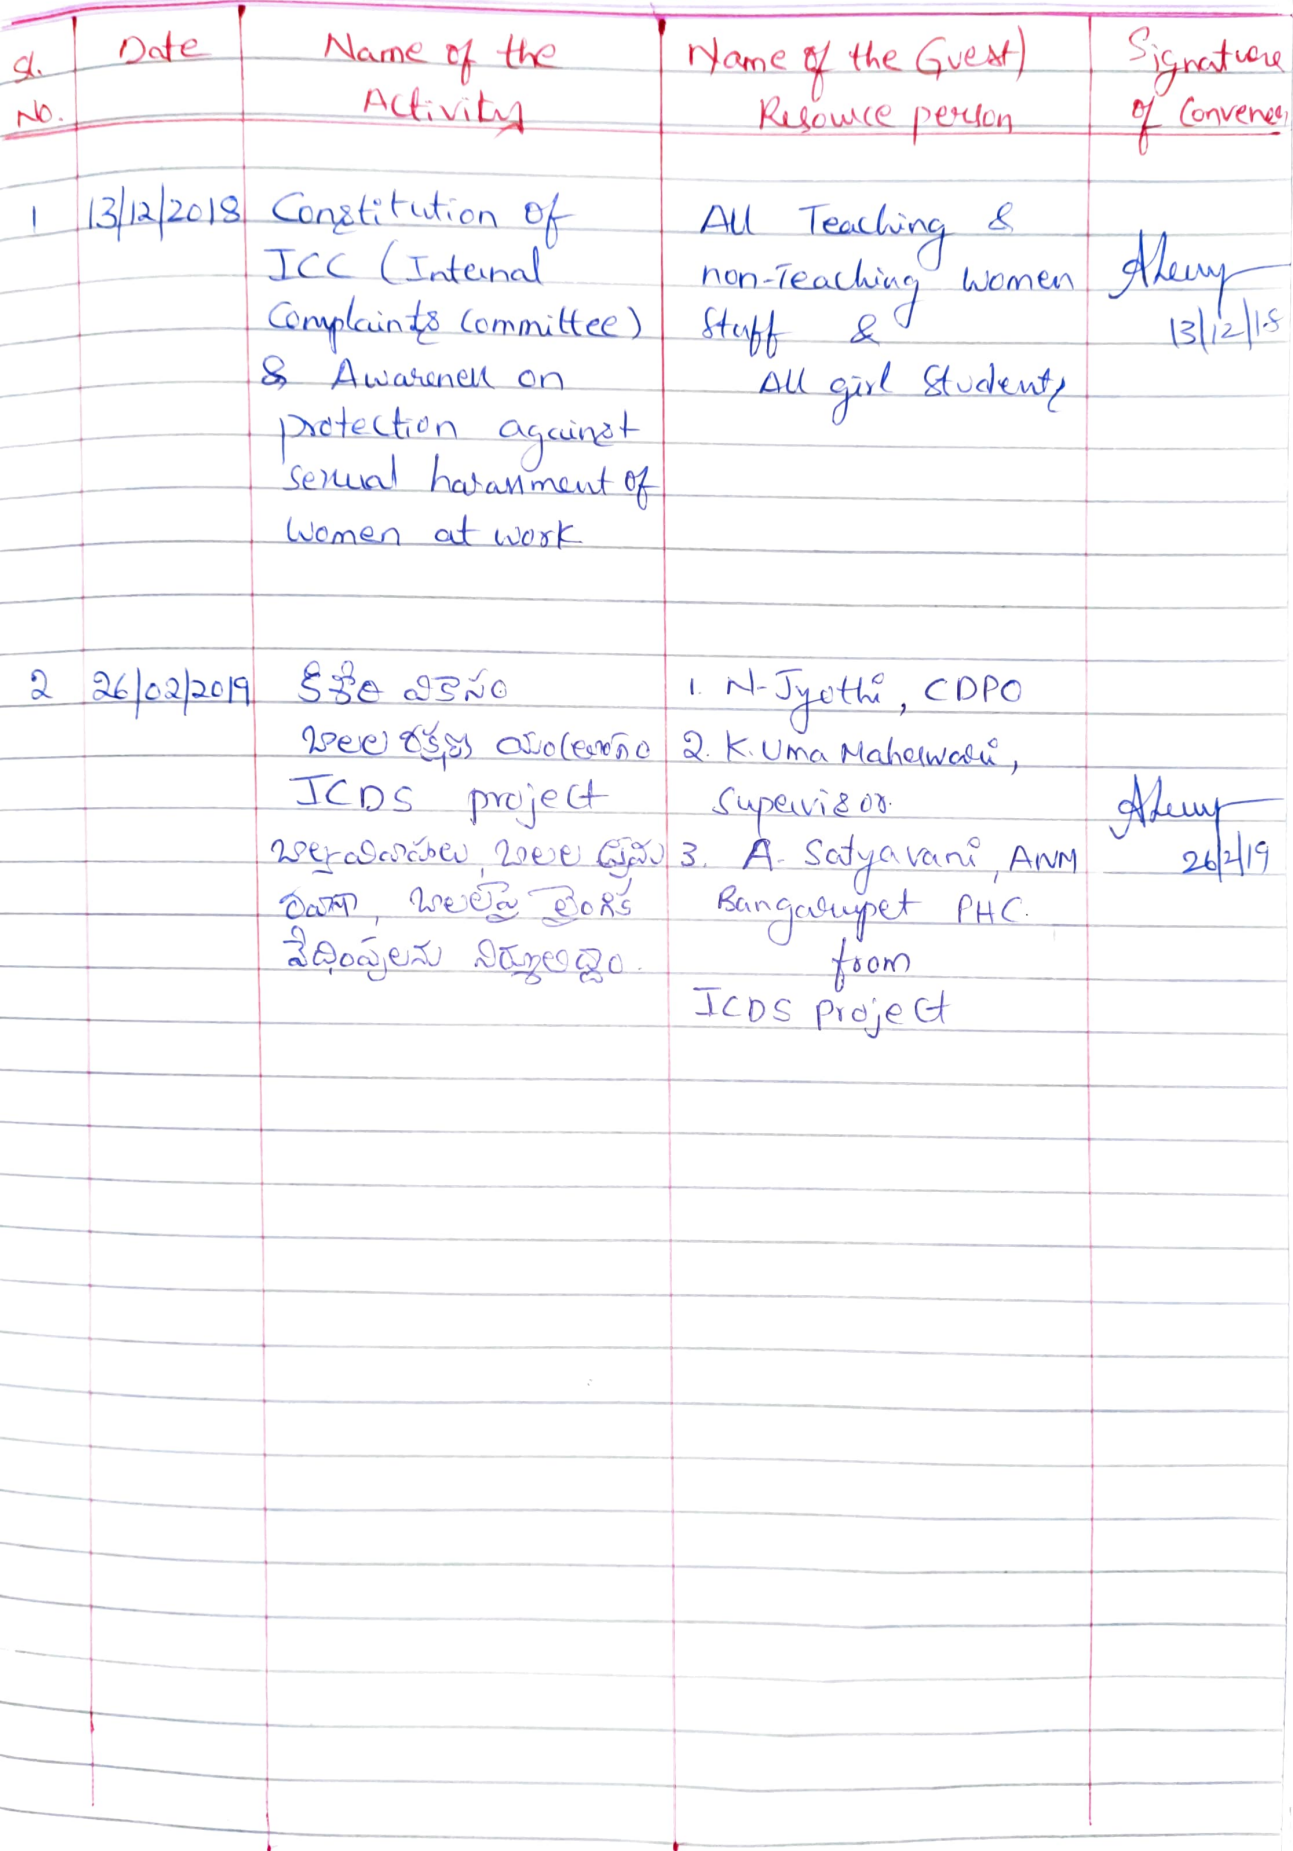 Sl. No.
Date
Name of the
Activity
Name of the Guest)
Resource person
Signature
of Convener
1
13/12/2018
Constitution of
ICC (Internal
Complaints Committee)
& Awareness on
protection against
sexual harassment of
women at work
All Teaching &
non-Teaching women
Staff &
All girl Students
13/12/18
2
26/02/2019
కిశోరి వికాసం
బాలల రక్షణ యంత్రాంగం
ICDS project
బాల్యవివాహలు, బాలల భ్రమ
రవాణా, బాలలపై లైంగిక
వేధింపులను నిర్మూలిద్దాం.
1. N. Jyothi, CDPO
2. K. Uma Maheswari,
Supervisor.
3. A. Satyavani, ANM
Bangarupet PHC.
from
ICDS project
26/2/19